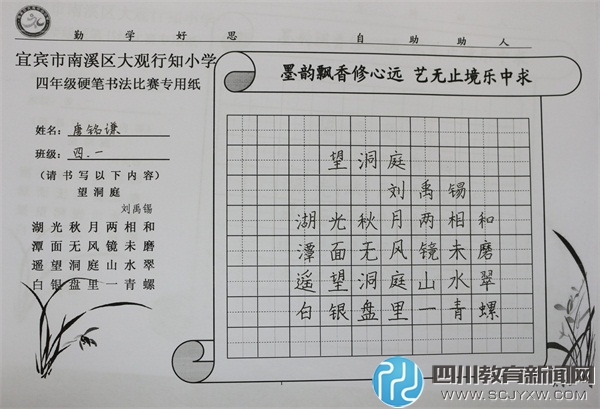 勤 学 好 思 自 助 助 人
宜宾市南溪区大观行知小学
四年级硬笔书法比赛专用纸
姓名：唐铭谦
班级：四.一
（请书写以下内容）
望洞庭
刘禹锡
湖光秋月两相和
潭面无风镜未磨
遥望洞庭山水翠
白银盘里一青螺
墨韵飘香修心远 艺无止境乐中求
望洞庭
刘禹锡
湖光秋月两相和
潭面无风镜未磨
遥望洞庭山水翠
白银盘里一青螺
四川教育新闻网
WWW.SCJYXW.COM